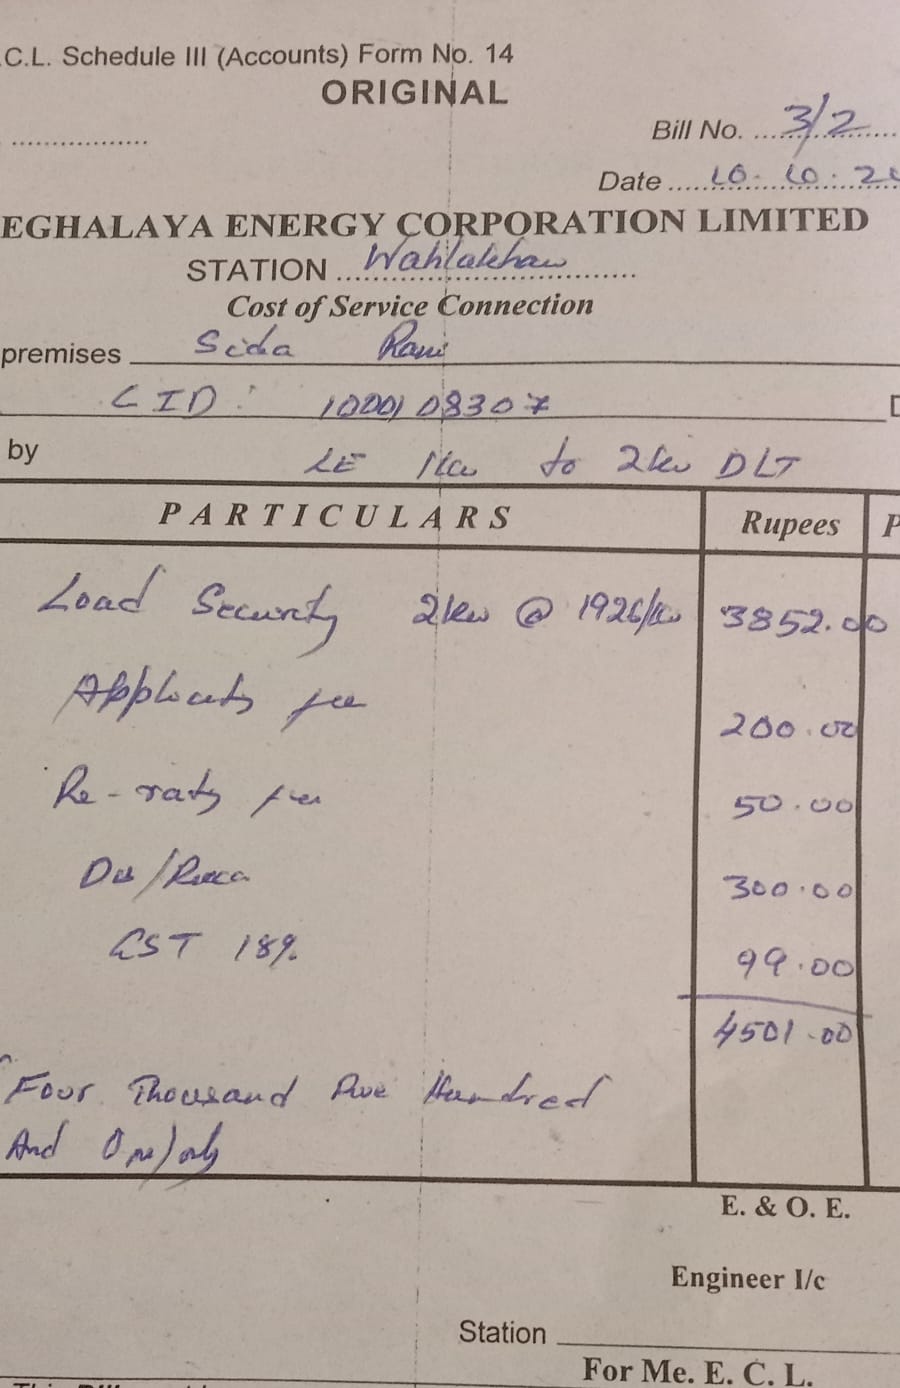 .C.L. Schedule III (Accounts) Form No. 14
ORIGINAL
Bill No. 3/2
Date 10.10.2
EGHALAYA ENERGY CORPORATION LIMITED
STATION Wahlakhaw
Cost of Service Connection
premises Sida Rani
CID: 1000108307
by LE 1kw to 2kw DLT
PARTICULARS Rupees P
Load Security 2kw @ 1926/kw 3852.00
fee 200.00
Re-rating fee 50.00
300.00
GST 18% 99.00
4501.00
Four Thousand Five Hundred
And One/only
E. & O. E.
Engineer I/c
Station
For Me. E. C. L.